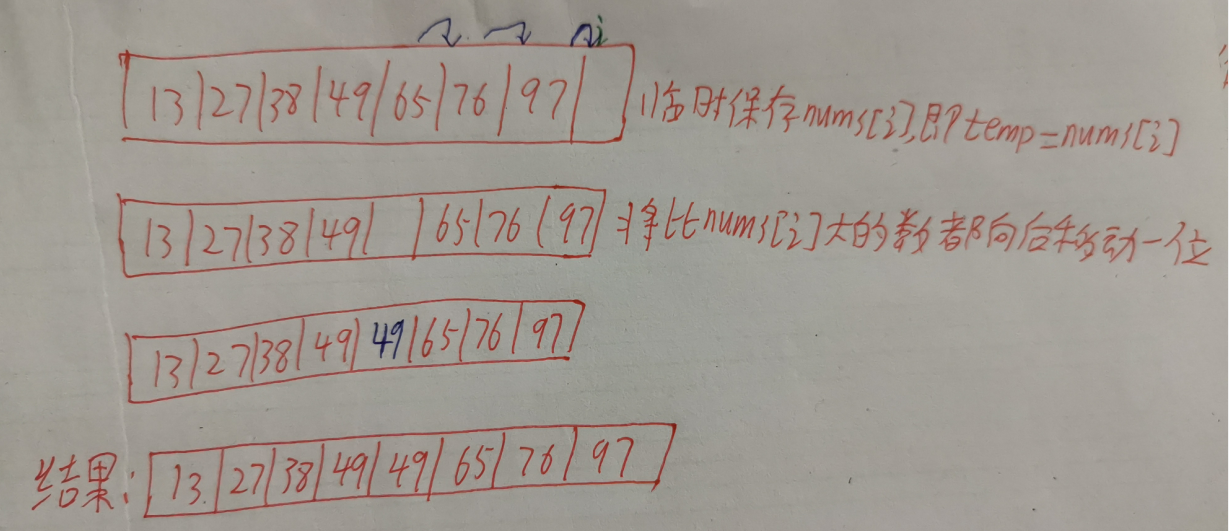 i
13|27|38|49|65|76|97| 临时保存nums[i],即temp=nums[i]
13|27|38|49| |65|76|97 将比nums[i]大的数都向后移动一位
13|27|38|49|49|65|76|97
结果: 13.|27|38|49|49|65|76|97